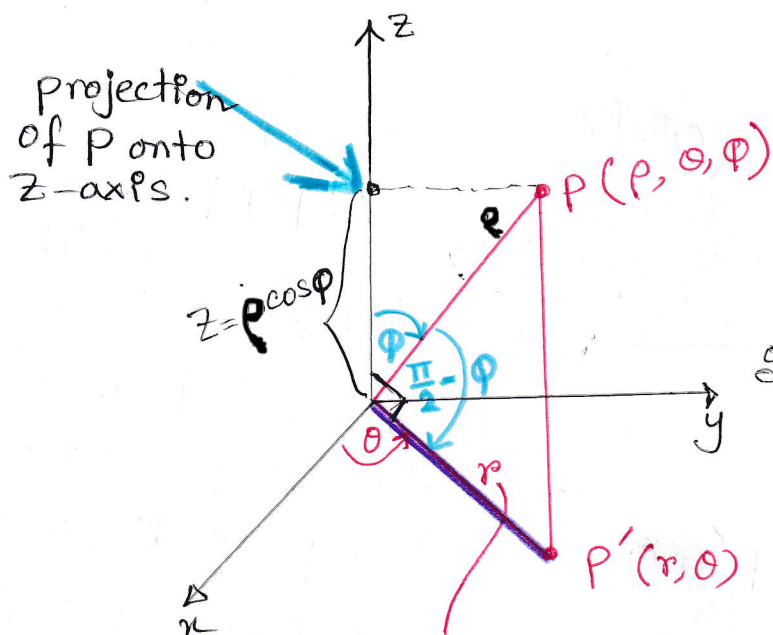 z
projection
of P onto
z-axis.
P (ρ, θ, φ)
ρ
z=ρcosφ
φ
π/2 - φ
y
θ
r
P′(r,θ)
x